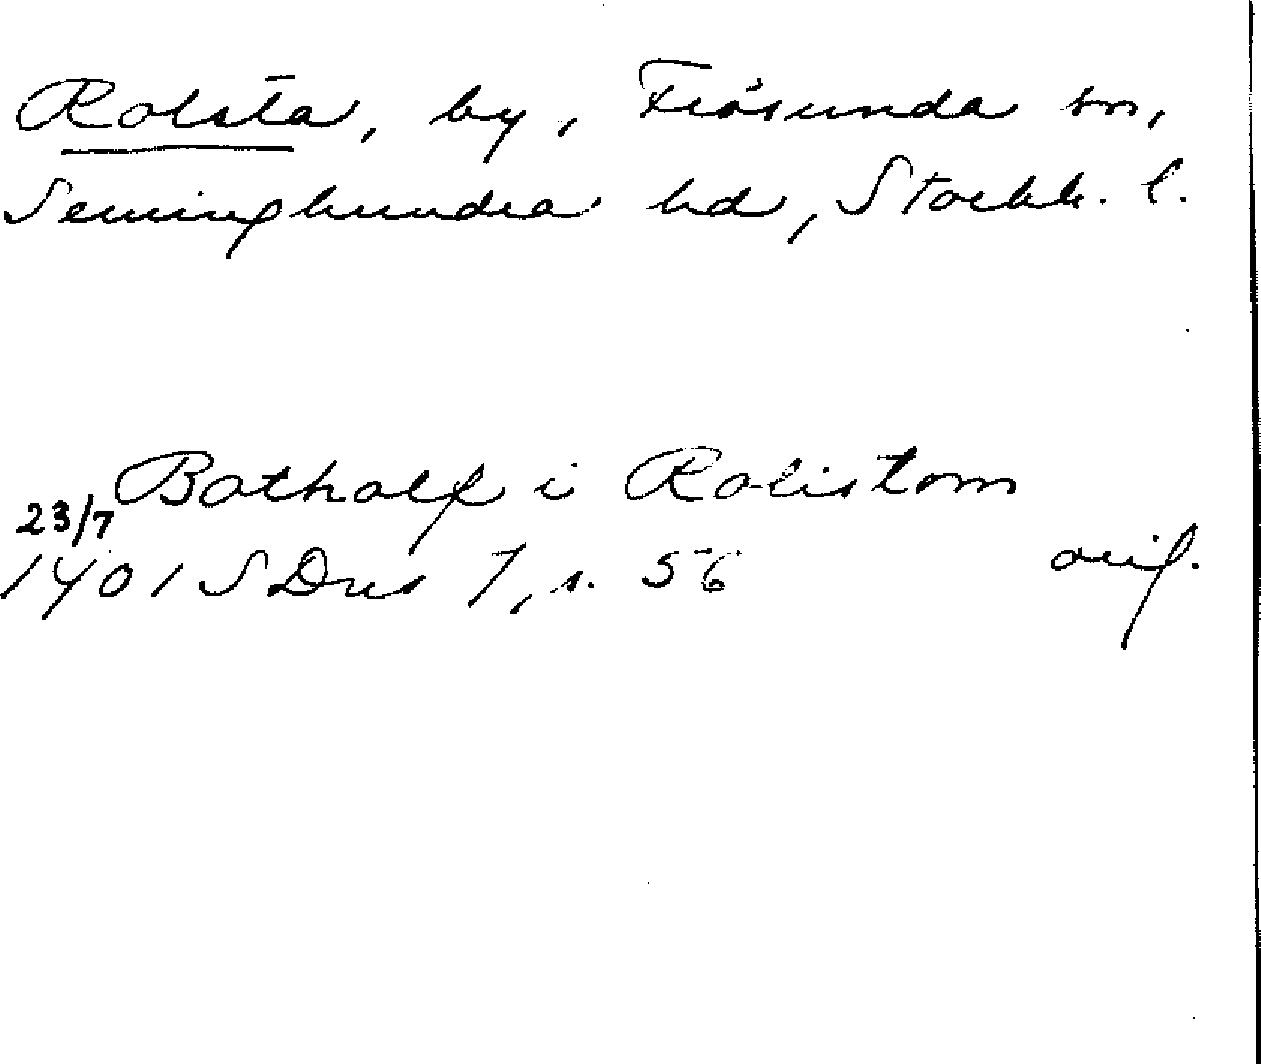 Rolsta, by, Frösunda sn,
Seminghundra hd, Stockh. l.
Botholf i Rolistom
23/7
1401 SDns 1, s. 56 orig.